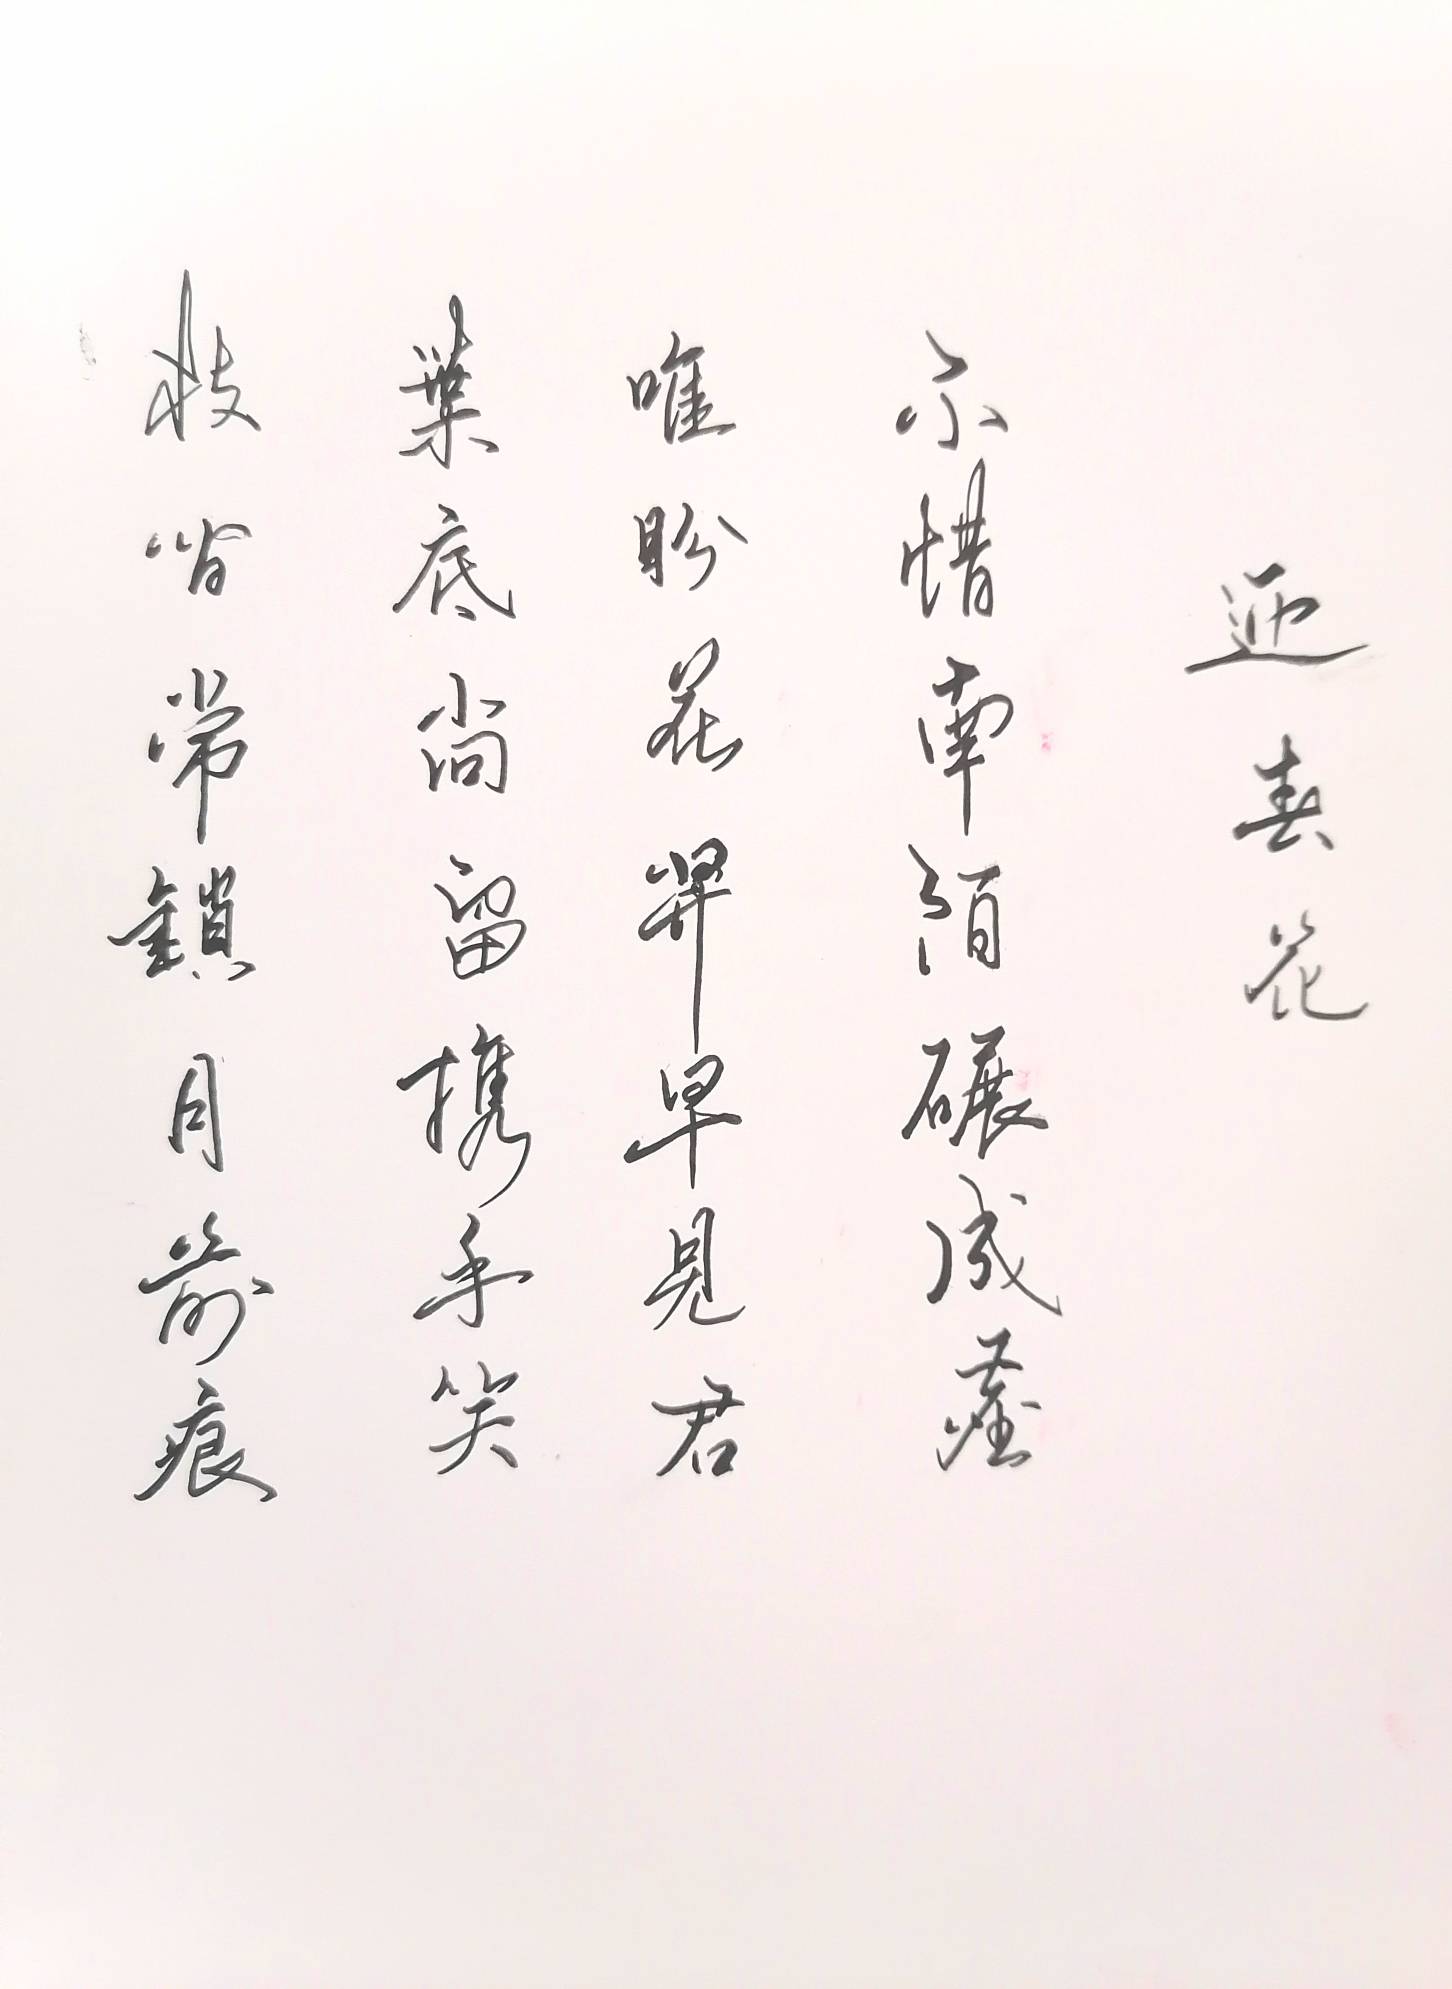 迎春花
不惜南陌碾成塵
唯盼花開早見君
葉底尚留携手笑
枝背常鎖月前痕